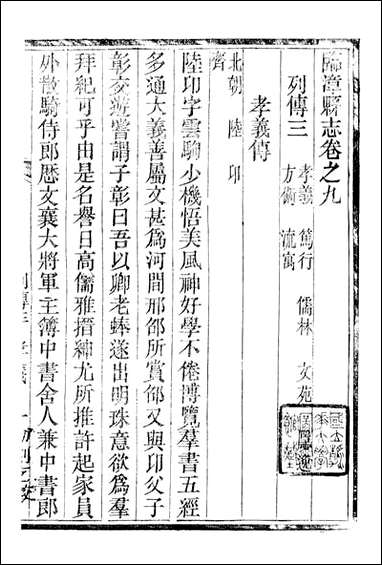 臨漳縣志卷之九
列傳三
孝義 篤行 儒林 文苑
方術 流寓
孝義傳
北朝 陸 印
齊
陸印字雲駒少機悟美風神好學不倦博覽羣書五經
多通大義善屬文甚為河間邢邵所賞邵又與印父子
彰交遊嘗謂子彰曰吾以卿老蜯遂出明珠意欲為羣
拜紀可乎由是名譽日高儒雅搢紳尤所推許起家員
外散騎侍郎歷文襄大將軍主簿中書舍人兼中書郎